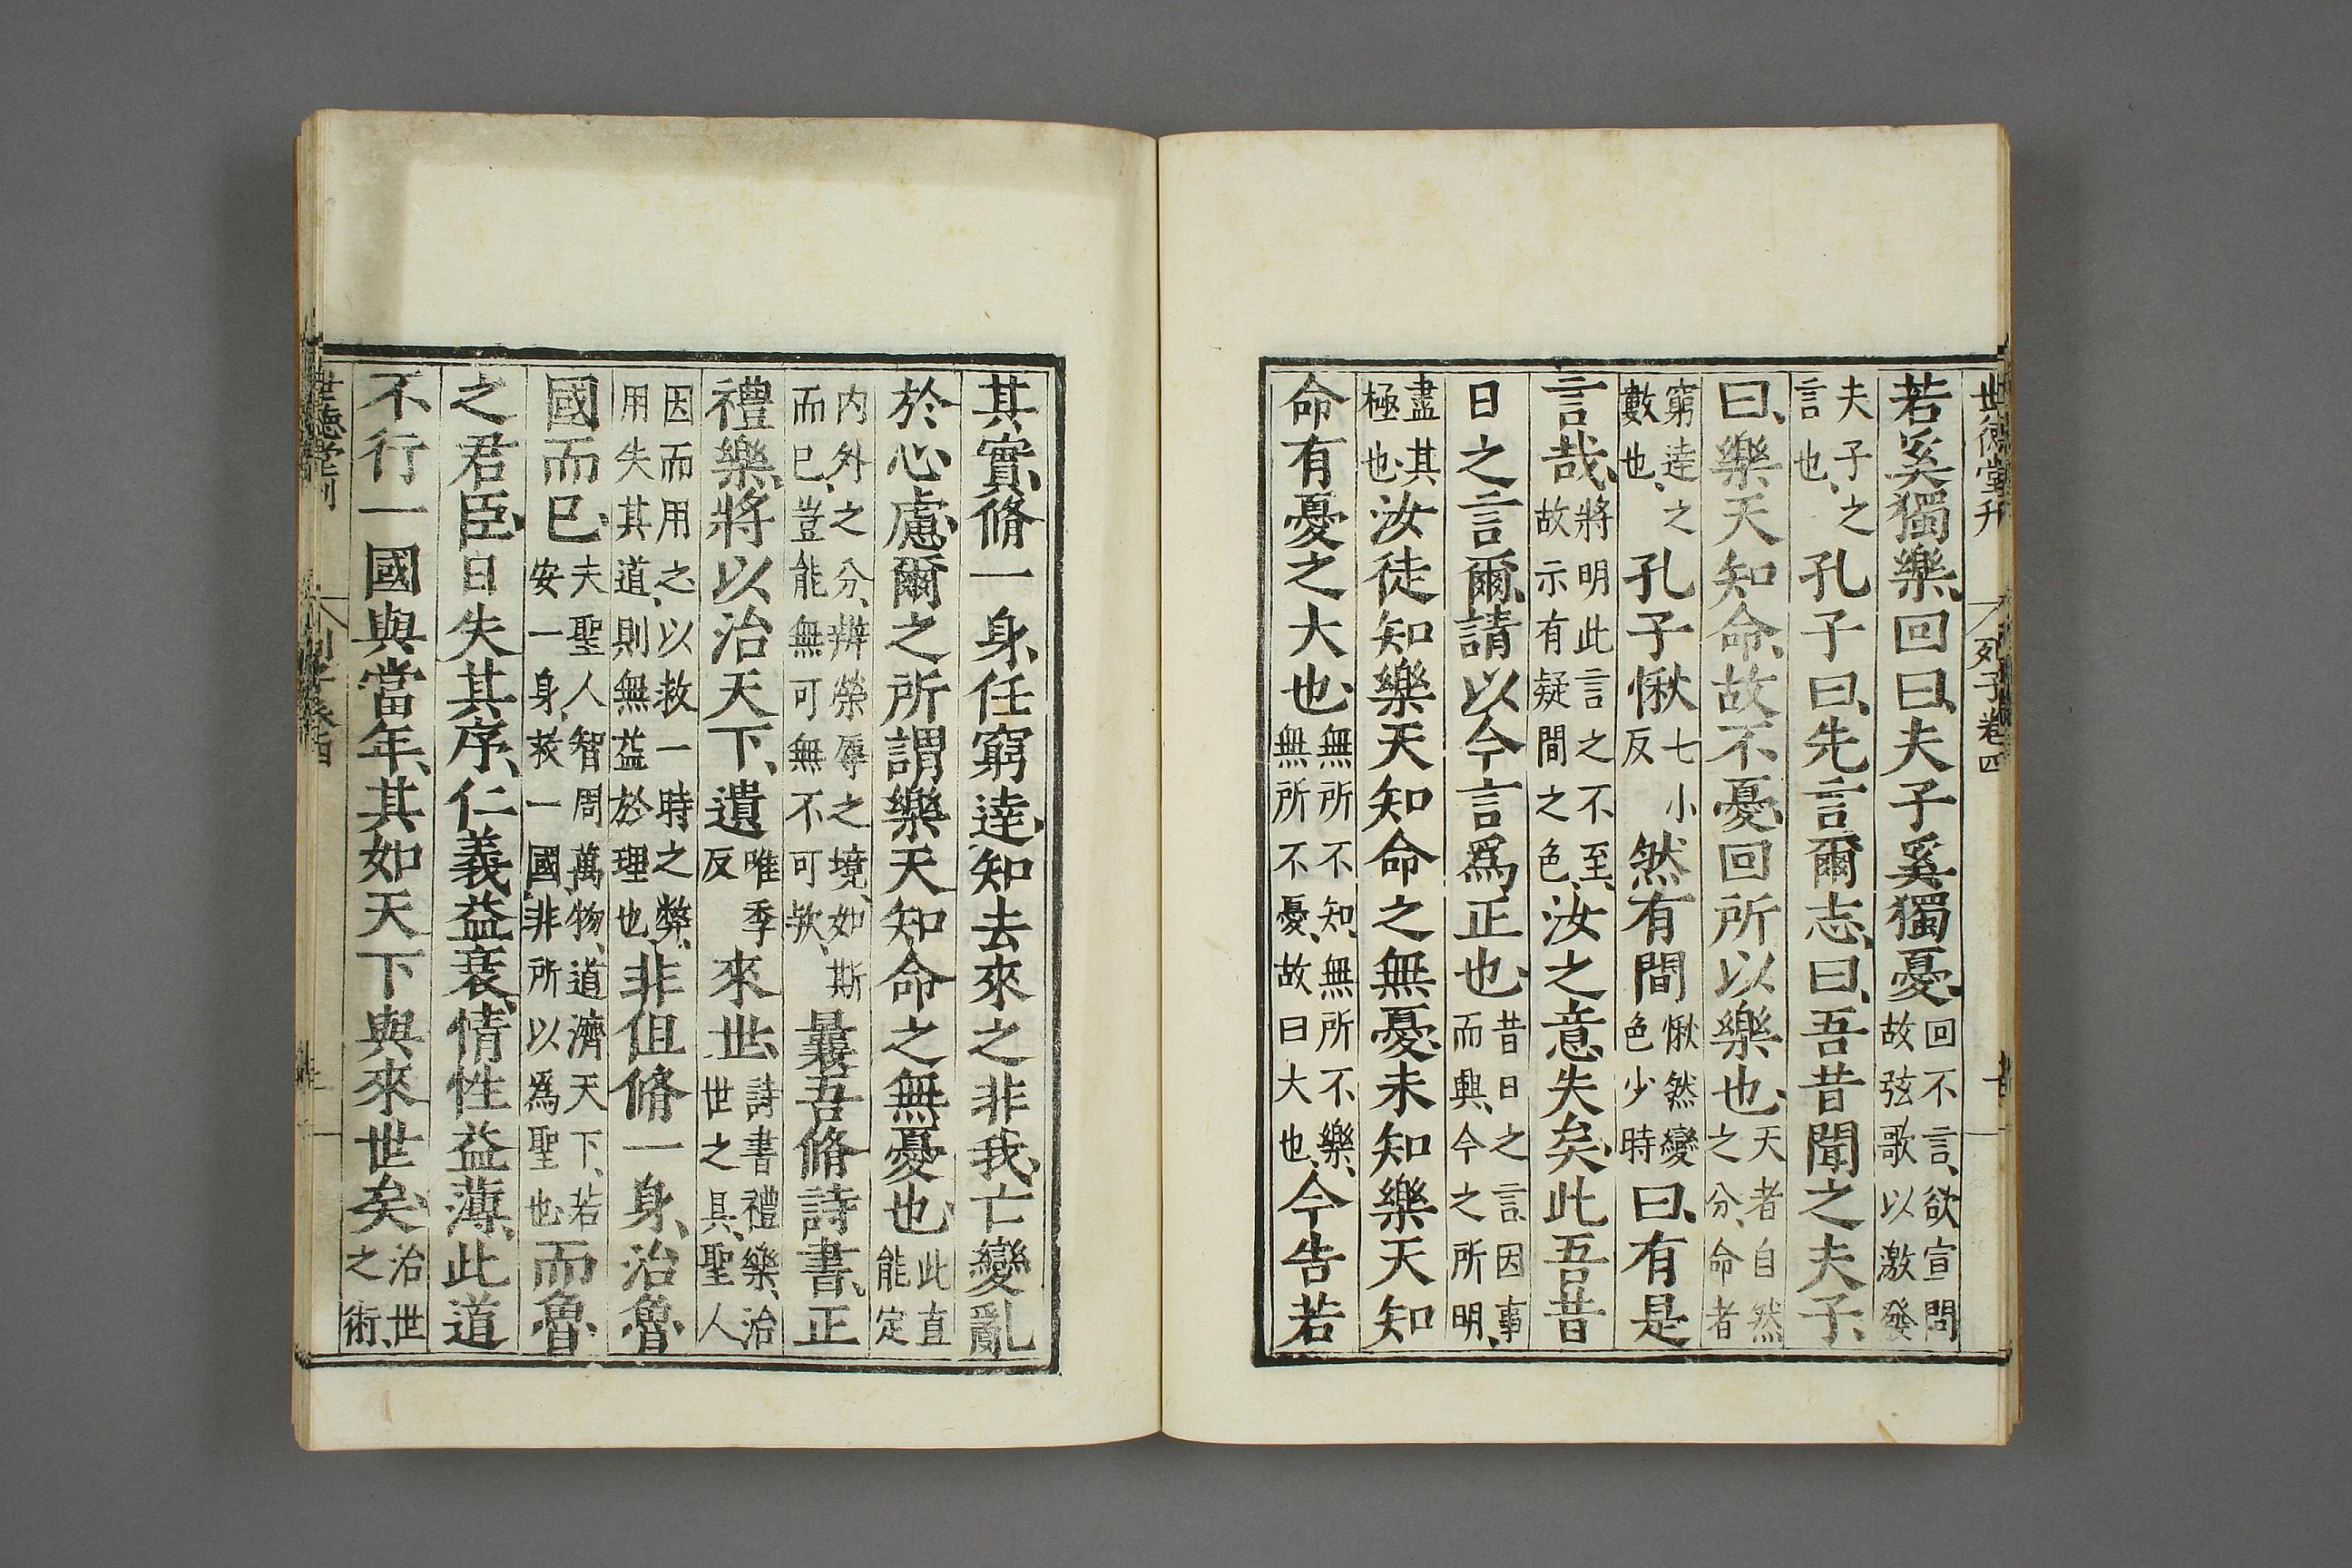 世德堂刊 列子卷四
若奚獨樂回曰夫子奚獨憂回不言欲宣問故弦歌以激發
夫子之言也孔子曰先言爾志曰吾昔聞之夫子
曰樂天知命故不憂回所以樂也天者自然之分命者
窮達之數也孔子愀七小反然有間愀然變色少時曰有是
言哉將明此言之不至故示有疑間之色汝之意失矣此吾昔
日之言爾請以今言爲正也昔日之言因事而興今之所明
盡其極也汝徒知樂天知命之無憂未知樂天知
命有憂之大也無所不知無所不樂無所不憂故曰大也今告若
其實脩一身任窮達知去來之非我亡變亂
於心慮爾之所謂樂天知命之無憂也此直能定
內外之分辨榮辱之境如斯而已豈能無可無不可欤曩吾脩詩書正
禮樂將以治天下遺唯季反來世詩書禮樂治世之具聖人
因而用之以救一時之弊用失其道則無益於理也非但脩一身治魯
國而已夫聖人智周萬物道濟天下若安一身救一國非所以爲聖也而魯
之君臣日失其序仁義益衰情性益薄此道
不行一國與當年其如天下與來世矣治世之術
世德堂刊 列子卷四